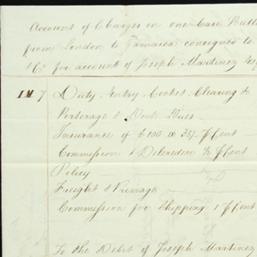 Account of Charges on one Case Bull
from London to Jamaica consigned to
& Co for account of Joseph Martinez Esq
JM 7 Duty Entry Cocket Clearing &
Porterage & Dock Dues
Insurance of £100 @ 35/ Pcent
Commission & Delcredere ½ Pcent
Policy
Freight & Primage
Commission for Shipping 1 Pcent
To the Debit of Joseph Martinez